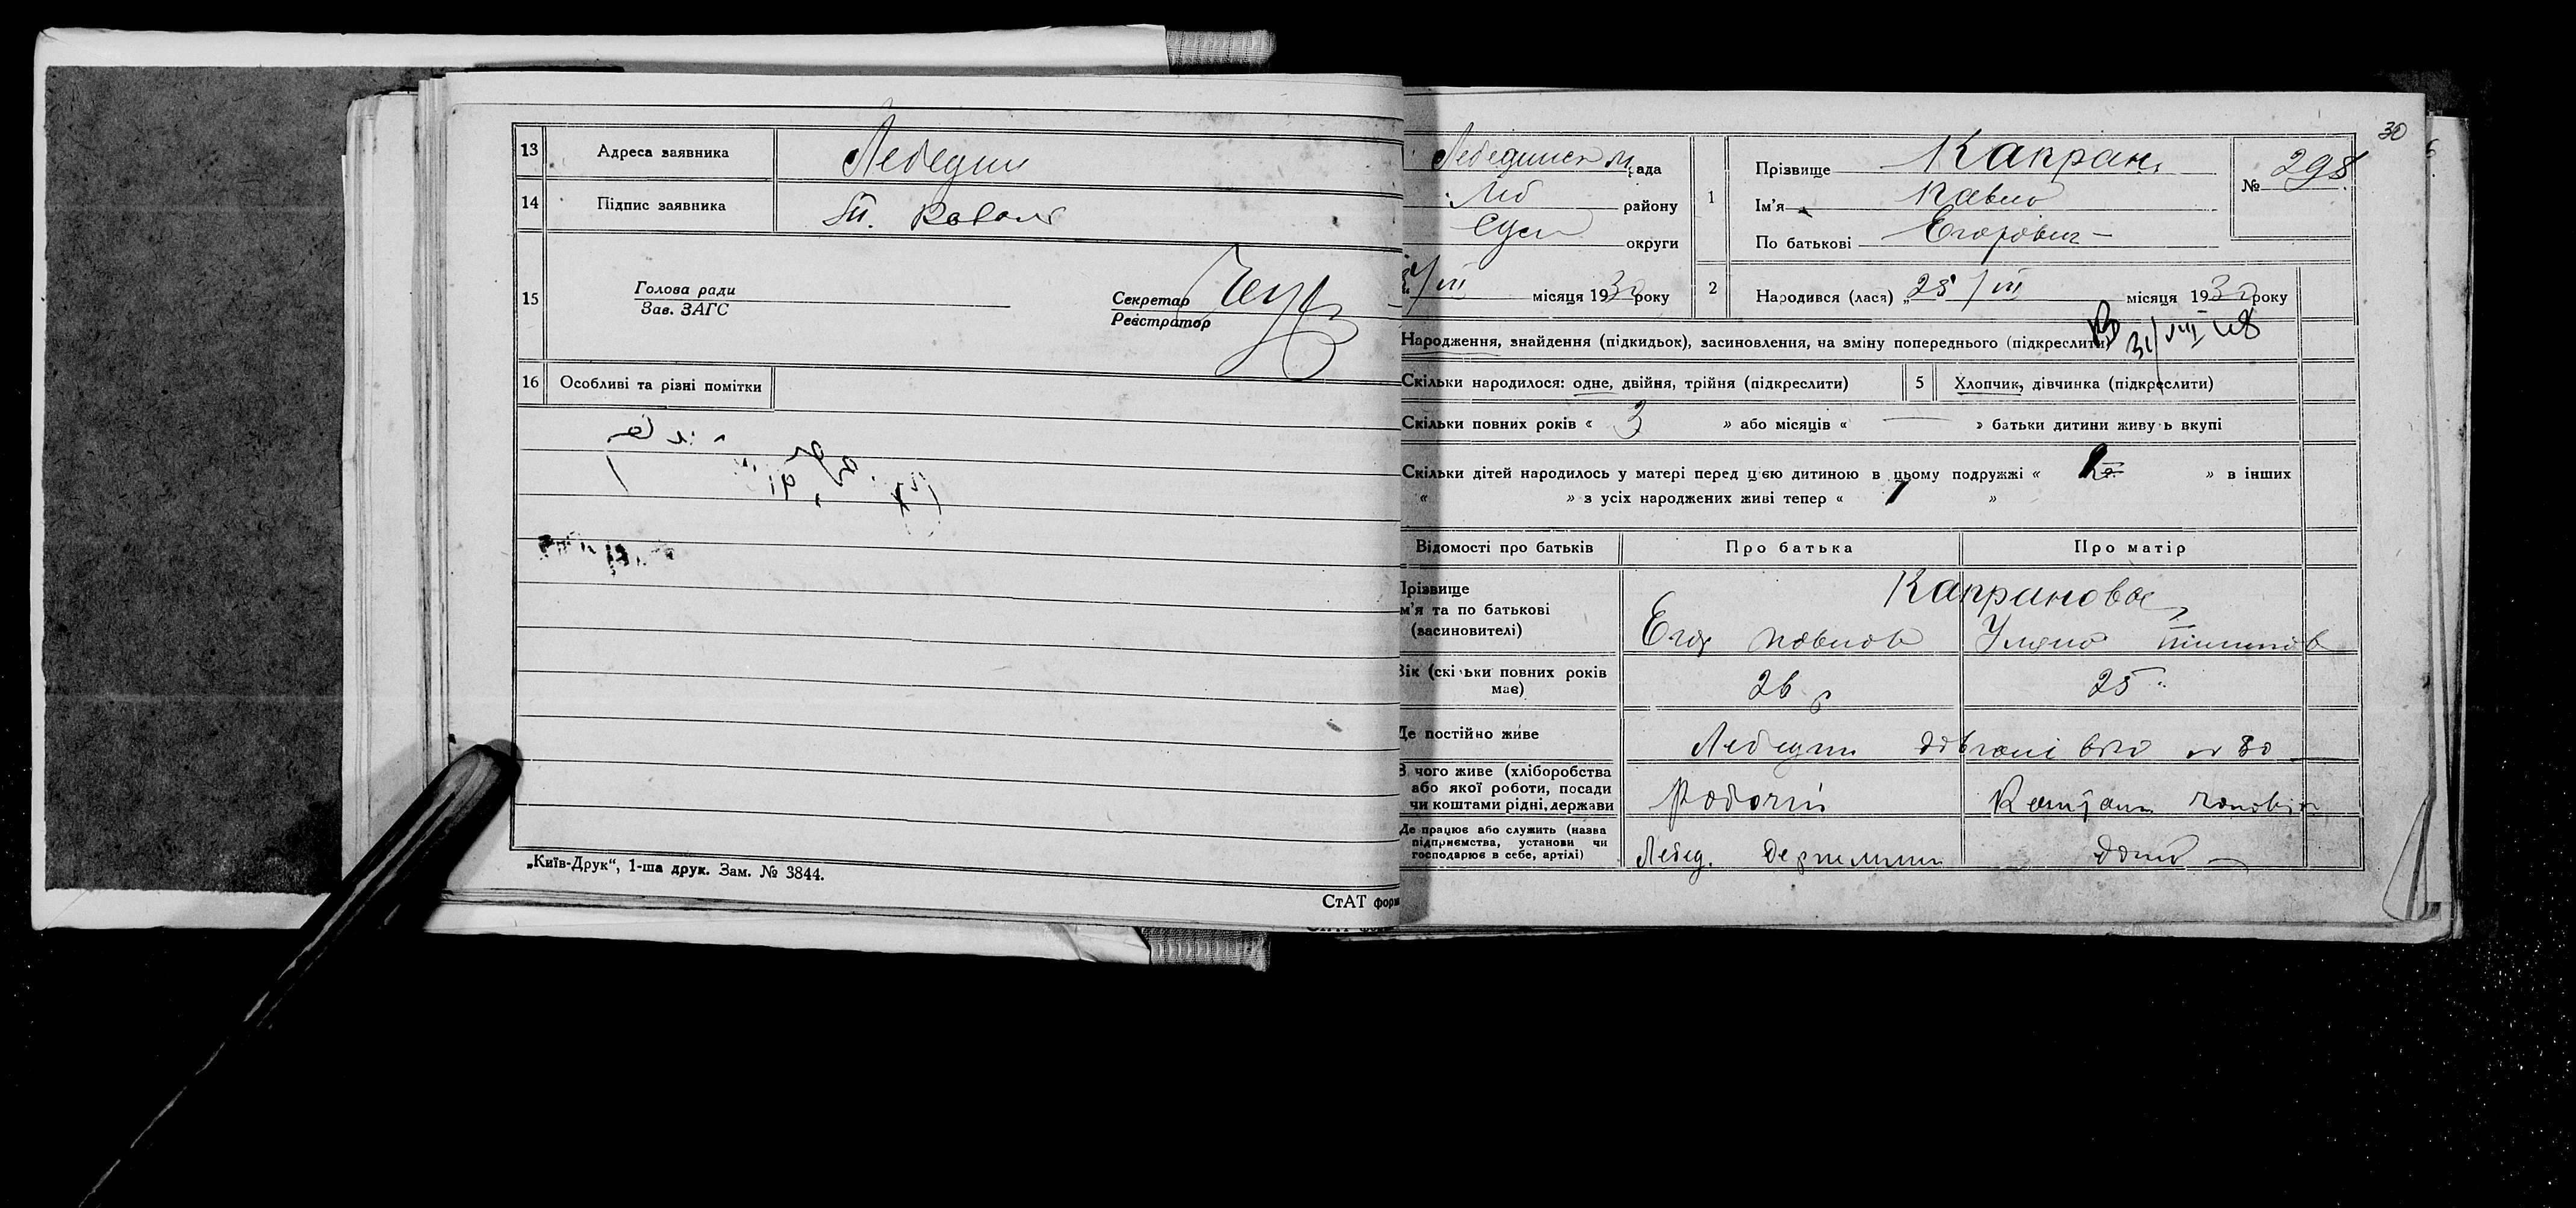 13 Адреса заявника Лебедин
14 Підпис заявника
15 Голова ради
Зав. ЗАГС
Секретар
Реєстратор
16 Особливі та різні помітки
„Київ-Друк“, 1-ша друк. Зам. № 3844.
СтАТ форм
30
Лебединськ м рада
Леб району
Сум округи
/III місяця 1930 року
1 Прізвище Капран
Ім'я Павло
По батькові Егорович
№ 298
2 Народився (лася) „28 / III місяця 1930 року
31/VIII 48
Народження, знайдення (підкидьок), засиновлення, на зміну попереднього (підкреслити)
Скільки народилося: одне, двійня, трійня (підкреслити)
5 Хлопчик, дівчинка (підкреслити)
Скільки повних років « 3 » або місяців « — » батьки дитини живуть вкупі
Скільки дітей народилось у матері перед цією дитиною в цьому подружжі « » в інших
« » з усіх народжених живі тепер « 1 »
Відомості про батьків Про батька Про матір
Прізвище
ім'я та по батькові
(засиновителі)
Капранови
Егор Павлов
Уляна
Вік (скільки повних років
має)
26 р
25
Де постійно живе
Лебедин № 80
З чого живе (хліборобства
або якої роботи, посади
чи коштами рідні, держави
Робочий
Де працює або служить (назва
підприємства, установи чи
господарює в себе, артілі)
Лебед. Держмлин
дома